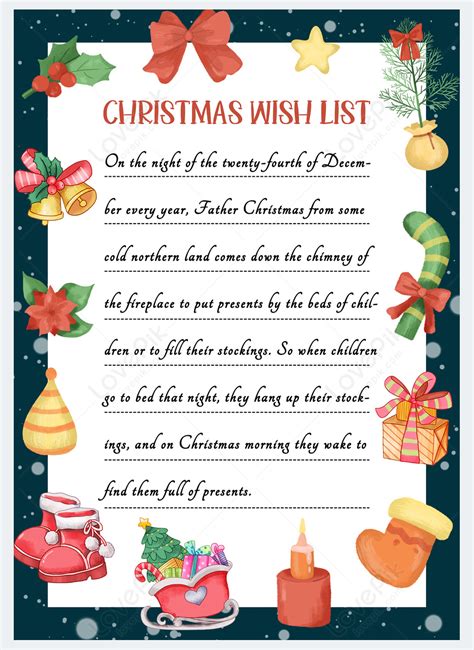 CHRISTMAS WISH LIST
On the night of the twenty-fourth of Decem-
ber every year, Father Christmas from some
cold northern land comes down the chimney of
the fireplace to put presents by the beds of chil-
dren or to fill their stockings. So when children
go to bed that night, they hang up their stock-
ings, and on Christmas morning they wake to
find them full of presents.